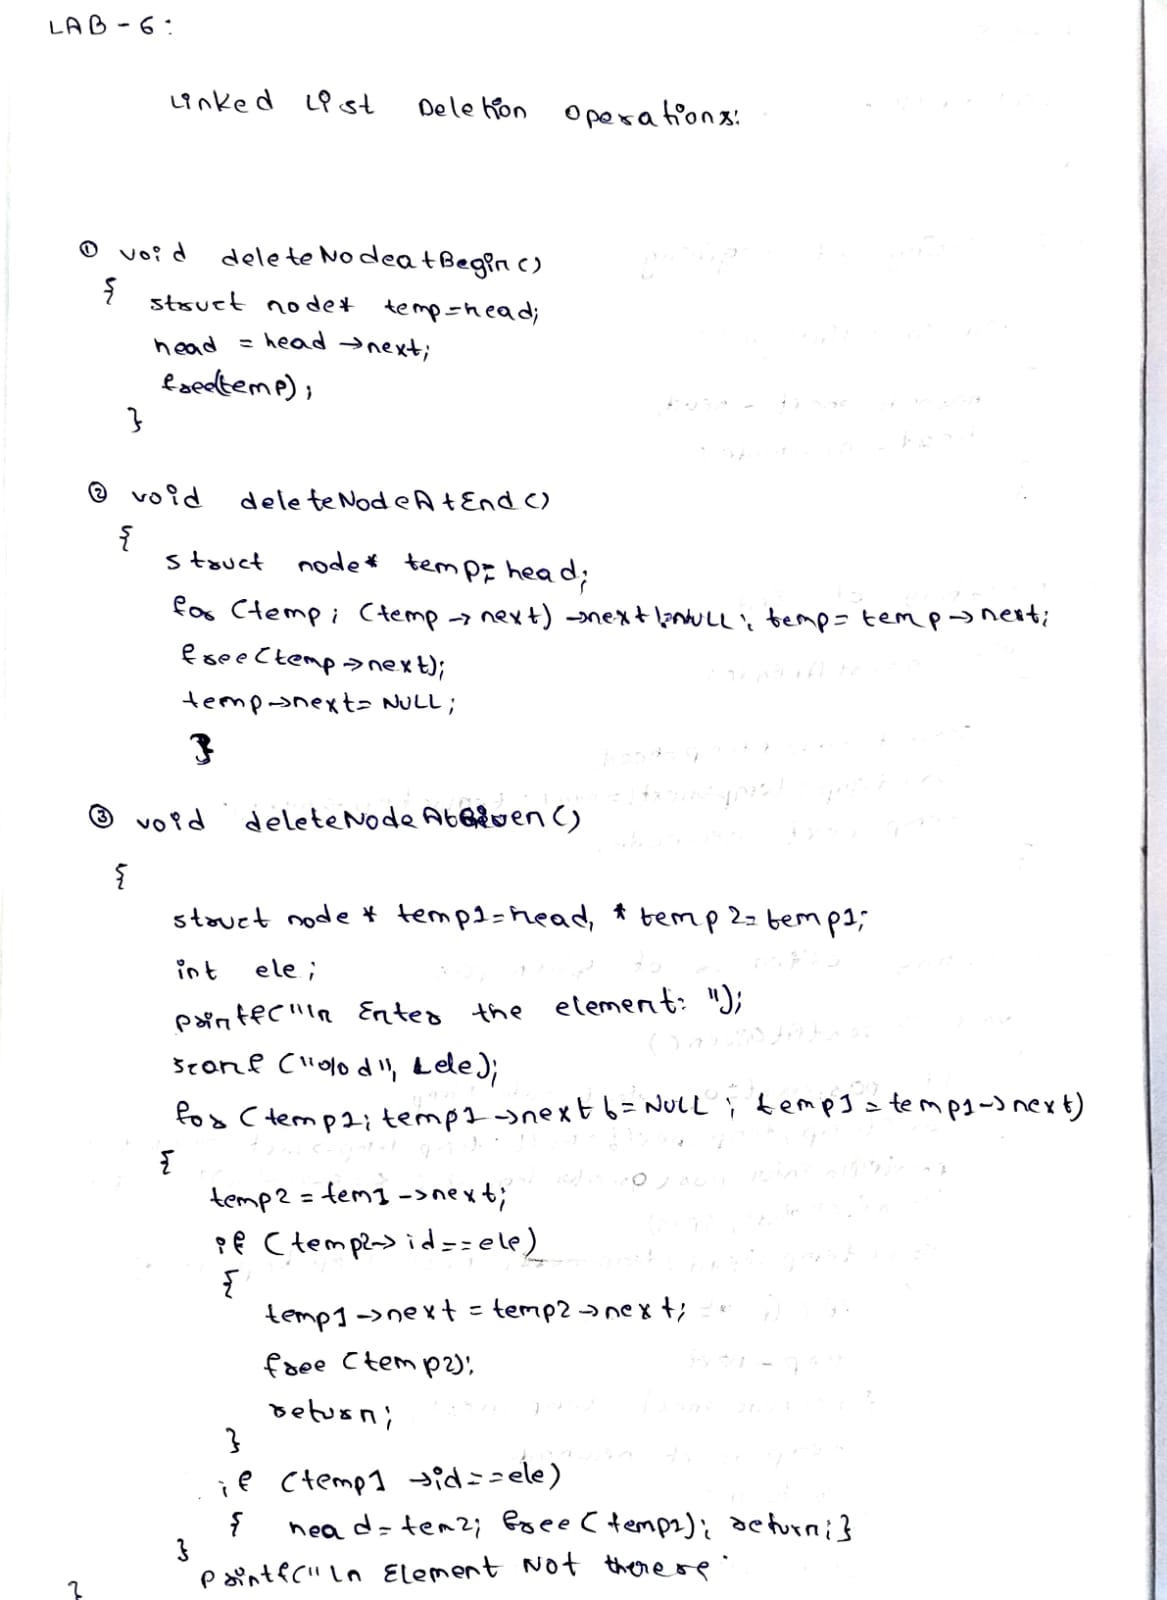 LAB - 6 :
Linked List Deletion Operations:
① void deleteNodeatBegin()
{ struct node* temp=head;
head = head →next;
free(temp);
}
② void deleteNodeAtEnd()
{
struct node* temp= head;
for (temp; (temp → next) →next!=NULL; temp= temp→next;
free(temp→next);
temp→next= NULL;
}
③ void deleteNodeAtGiven()
{
struct node * temp1=head, * temp2=temp1;
int ele;
printf("\n Enter the element: ");
scanf ("%d", &ele);
for (temp1; temp1→next != NULL ; temp1 = temp1→next)
{
temp2 = tem1 ->next;
if (temp2→id==ele)
{
temp1->next = temp2→next;
free (temp2);
return;
}
if (temp1 →id==ele)
{ head= tem2; free(temp1); return;}
}
printf("\n Element Not therese
}